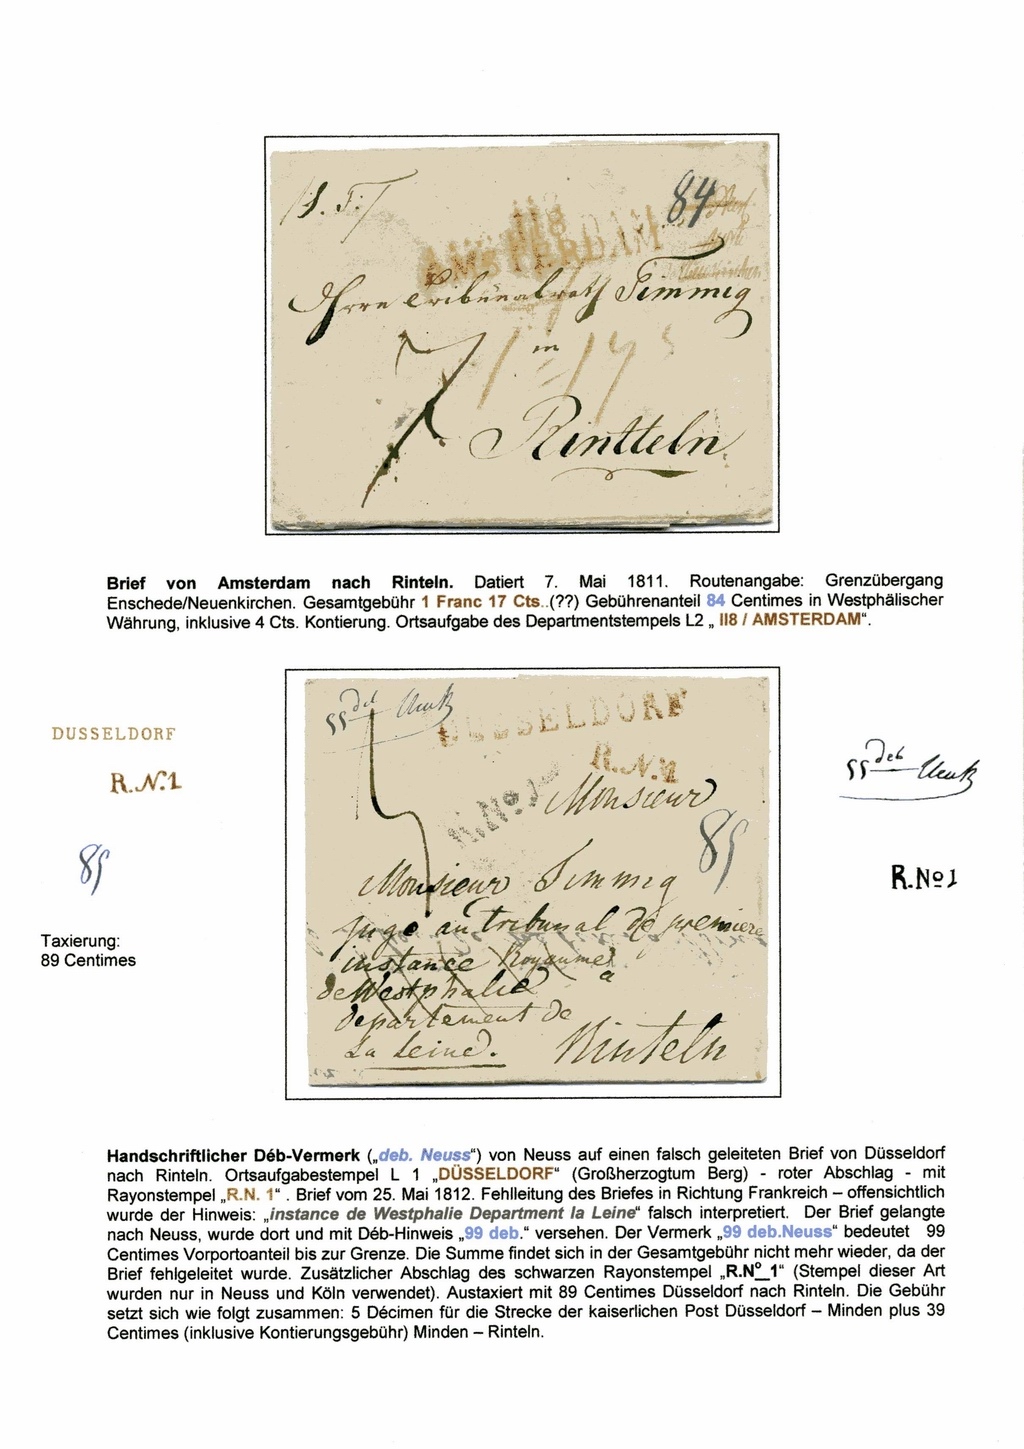 84
118
AMSTERDAM
Herrn Tribunalrath Timmig
in
Rintteln
Brief von Amsterdam nach Rinteln. Datiert 7. Mai 1811. Routenangabe: Grenzübergang
Enschede/Neuenkirchen. Gesamtgebühr 1 Franc 17 Cts..(??) Gebührenanteil 84 Centimes in Westphälischer
Währung, inklusive 4 Cts. Kontierung. Ortsaufgabe des Departmentstempels L2 „ II8 / AMSTERDAM“.
deb
DUSSELDORF
R.N.1
R.No 1
Monsieur
89
Monsieur Timmig
juge au tribunal de premiere
instance Royaume
de Westphalie a
departement de
La Leine. Rinteln
DUSSELDORF
R.N.1
89
Taxierung:
89 Centimes
deb
R.No1
Handschriftlicher Déb-Vermerk („deb. Neuss“) von Neuss auf einen falsch geleiteten Brief von Düsseldorf
nach Rinteln. Ortsaufgabestempel L 1 „DÜSSELDORF“ (Großherzogtum Berg) - roter Abschlag - mit
Rayonstempel „R.N. 1“ . Brief vom 25. Mai 1812. Fehlleitung des Briefes in Richtung Frankreich – offensichtlich
wurde der Hinweis: „instance de Westphalie Department la Leine“ falsch interpretiert. Der Brief gelangte
nach Neuss, wurde dort und mit Déb-Hinweis „99 deb.“ versehen. Der Vermerk „99 deb.Neuss“ bedeutet 99
Centimes Vorportoanteil bis zur Grenze. Die Summe findet sich in der Gesamtgebühr nicht mehr wieder, da der
Brief fehlgeleitet wurde. Zusätzlicher Abschlag des schwarzen Rayonstempel „R.N°_1“ (Stempel dieser Art
wurden nur in Neuss und Köln verwendet). Austaxiert mit 89 Centimes Düsseldorf nach Rinteln. Die Gebühr
setzt sich wie folgt zusammen: 5 Décimen für die Strecke der kaiserlichen Post Düsseldorf – Minden plus 39
Centimes (inklusive Kontierungsgebühr) Minden – Rinteln.